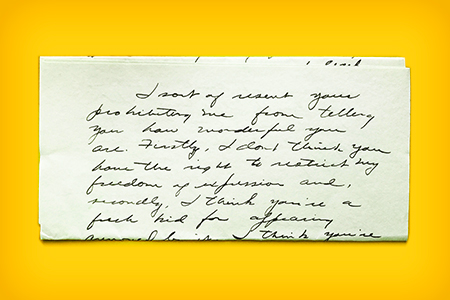 I sort of resent your
prohibiting me from telling
you how wonderful you
are. Firstly, I don't think you
have the right to restrict my
freedom of expression and,
secondly, I think you're a
fresh kid for appearing
I think you're